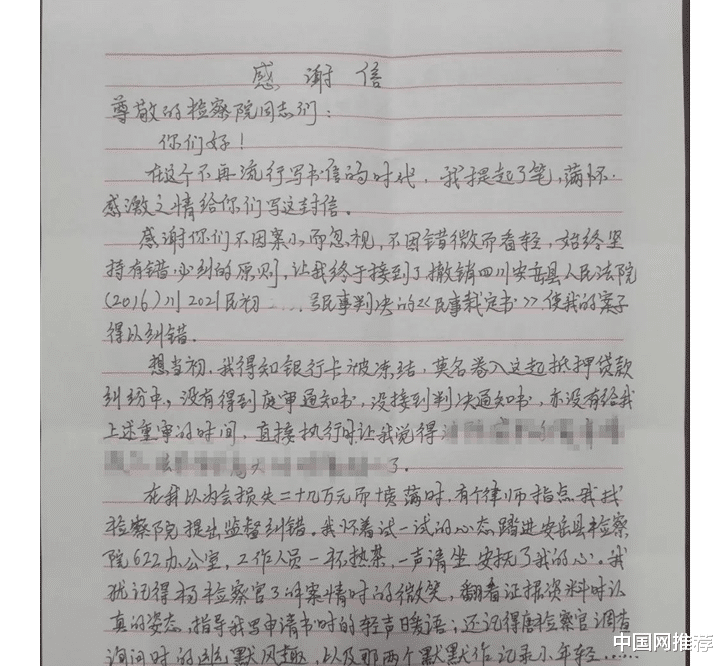 感谢信
尊敬的检察院同志们：
你们好！
在这个不再流行写书信的时代，我提起了笔，满怀
感激之情给你们写这封信。
感谢你们不因案小而忽视，不因错微而看轻，始终坚
持有错必纠的原则，让我终于接到了撤销四川安岳县人民法院
(2016)川2021民初.....号民事判决的《民事裁定书》，使我的案子
得以纠错。
想当初，我得知银行卡被冻结，莫名卷入这起抵押贷款
纠纷中。没有得到庭审通知书，没接到判决通知书，亦没有给我
上述重审的时间，直接执行时让我觉得
了.
在我以为会损失二十几万元而颓落时，有个律师指点我找
检察院提出监督纠错。我怀着试一试的心态踏进安岳县检察
院622办公室，工作人员一杯热茶，一声请坐安抚了我的心。我
犹记得杨检察官了解案情时的微笑，翻看证据资料时认
真的姿态，指导我写申请书时的轻声暖语；还记得唐检察官调查
询问时的幽默风趣，以及那两个默默作记录小年轻....
中国网推荐